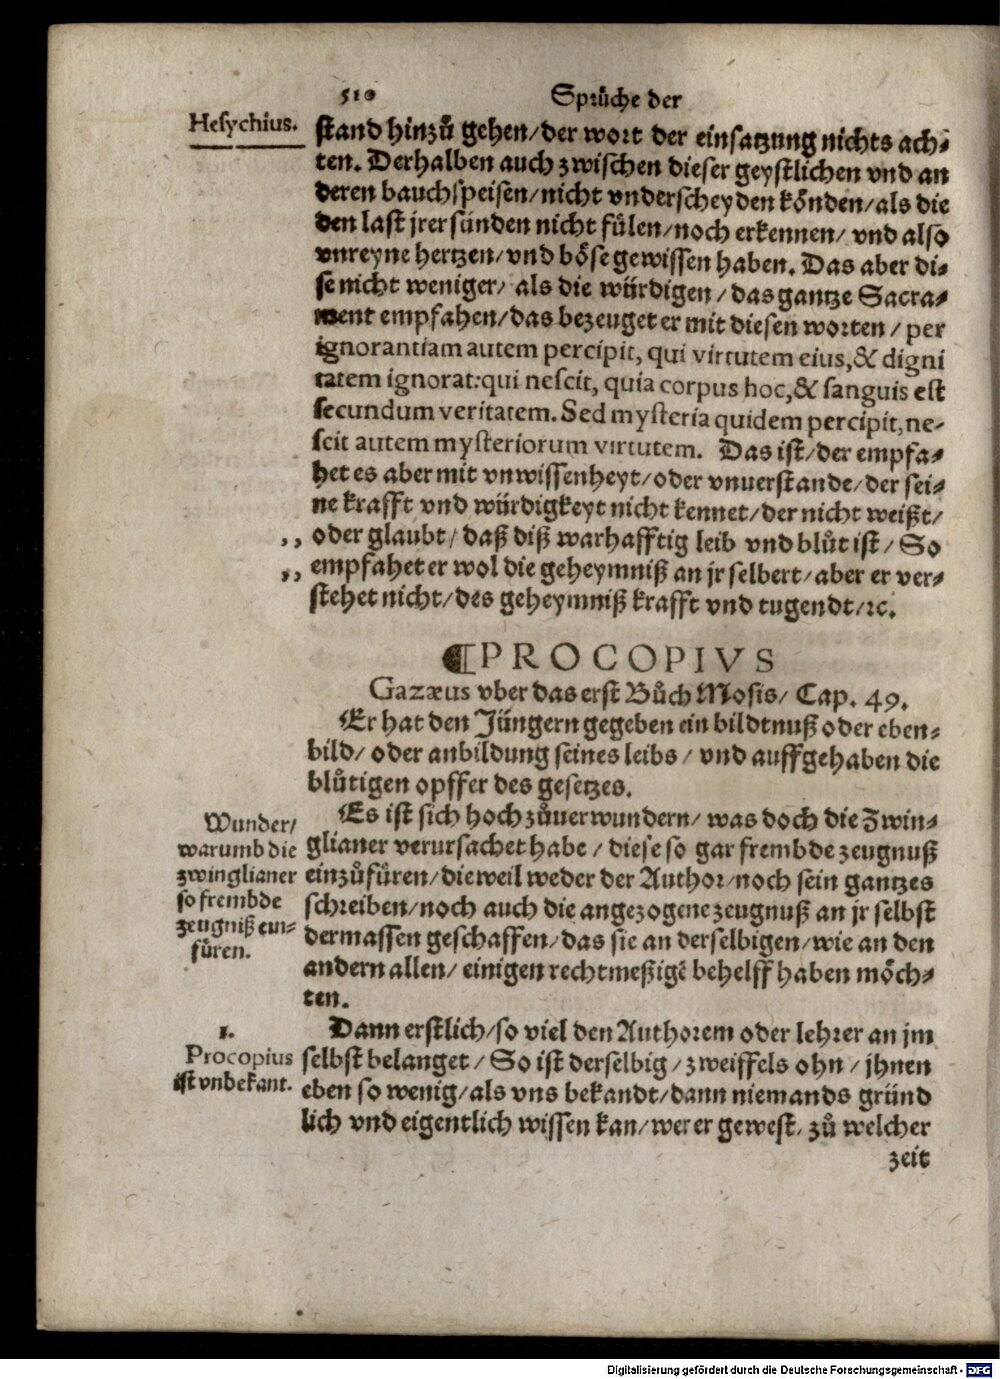 510 Sprüche der
Hesychius.
stand hinzů gehen/der wort der einsatzung nichts ach⸗
ten. Derhalben auch zwischen dieser geystlichen vnd an
deren bauchspeisen/nicht vnderscheyden könden/als die
den last jrer sünden nicht fülen/noch erkennen/ vnd also
vnreyne hertzen/vnd böse gewissen haben. Das aber di⸗
se nicht weniger/ als die würdigen/das gantze Sacra⸗
ment empfahen/das bezeuget er mit diesen worten/ per
ignorantiam autem percipit, qui virtutem eius,& digni
tatem ignorat:qui nescit, quia corpus hoc,& sanguis est
secundum veritatem. Sed mysteria quidem percipit,ne-
scit autem mysteriorum virtutem. Das ist/der empfa⸗
het es aber mit vnwissenheyt/oder vnuerstande/der sei⸗
ne krafft vnd würdigkeyt nicht kennet/der nicht weißt/
,, oder glaubt/ daß diß warhafftig leib vnd blůt ist/ So
,, empfahet er wol die geheymniß an jr selbert/aber er ver⸗
stehet nicht/des geheymniß krafft vnd tugendt/ꝛc.
¶PROCOPIVS
Gazæus vber das erst Bůch Mosis/ Cap. 49.
Er hat den Jüngern gegeben ein bildtnuß oder eben⸗
bild/ oder anbildung seines leibs/ vnd auffgehaben die
blůtigen opffer des gesetzes.
Es ist sich hoch zůuerwundern/ was doch die Zwin⸗
glianer verursachet habe/ diese so gar frembde zeugnuß
einzůfüren/dieweil weder der Author/noch sein gantzes
schreiben/noch auch die angezogene zeugnuß an jr selbst
dermassen geschaffen/das sie an derselbigen/wie an den
andern allen/ einigen rechtmeßigẽ behelff haben möch⸗
ten.
Wunder/
warumb die
zwinglianer
so frembde
zeugniß ein⸗
füren.
Dann erstlich/so viel den Authorem oder lehrer an jm
selbst belanget/ So ist derselbig/ zweiffels ohn/ jhnen
eben so wenig/als vns bekandt/dann niemands gründ
lich vnd eigentlich wissen kan/wer er gewest/ zů welcher
1.
Procopius
ist vnbekant.
zeit
Digitalisierung gefördert durch die Deutsche Forschungsgemeinschaft - DFG